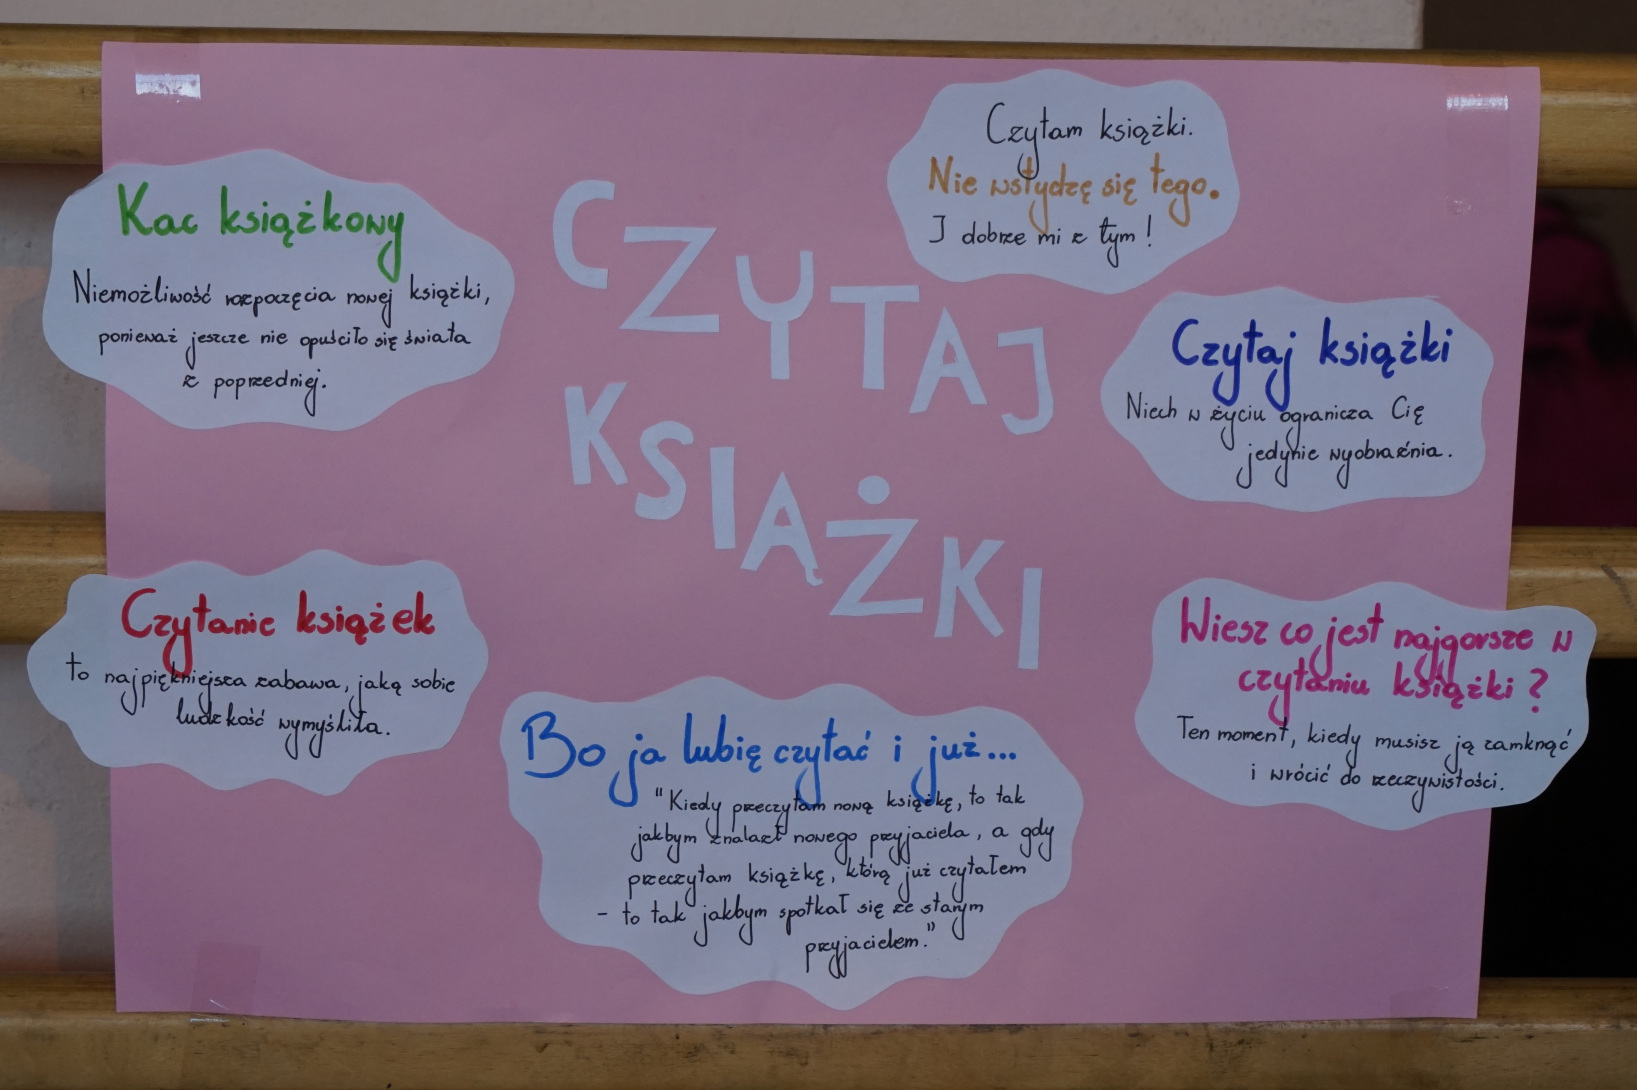 CZYTAJ
KSIĄŻKI
Kac książkowy
Niemożliwość rozpoczęcia nowej książki,
ponieważ jeszcze nie opuściło się świata
z poprzedniej.
Czytam książki.
Nie wstydzę się tego.
I dobrze mi z tym!
Czytaj książki
Niech w życiu ogranicza Cię
jedynie wyobraźnia.
Czytanie książek
to najpiękniejsza zabawa, jaką sobie
ludzkość wymyśliła.
Bo ja lubię czytać i już...
"Kiedy przeczytam nową książkę, to tak
jakbym znalazł nowego przyjaciela, a gdy
przeczytam książkę, którą już czytałem
- to tak jakbym spotkał się ze starym
przyjacielem."
Wiesz co jest najgorsze w
czytaniu książki?
Ten moment, kiedy musisz ją zamknąć
i wrócić do rzeczywistości.